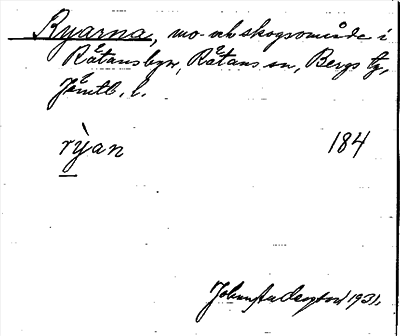 Ryarna, mo- och skogsområde i
Rätansbyn, Rätans sn, Bergs tg,
Jämtl. l.
rỳan 184
1931.